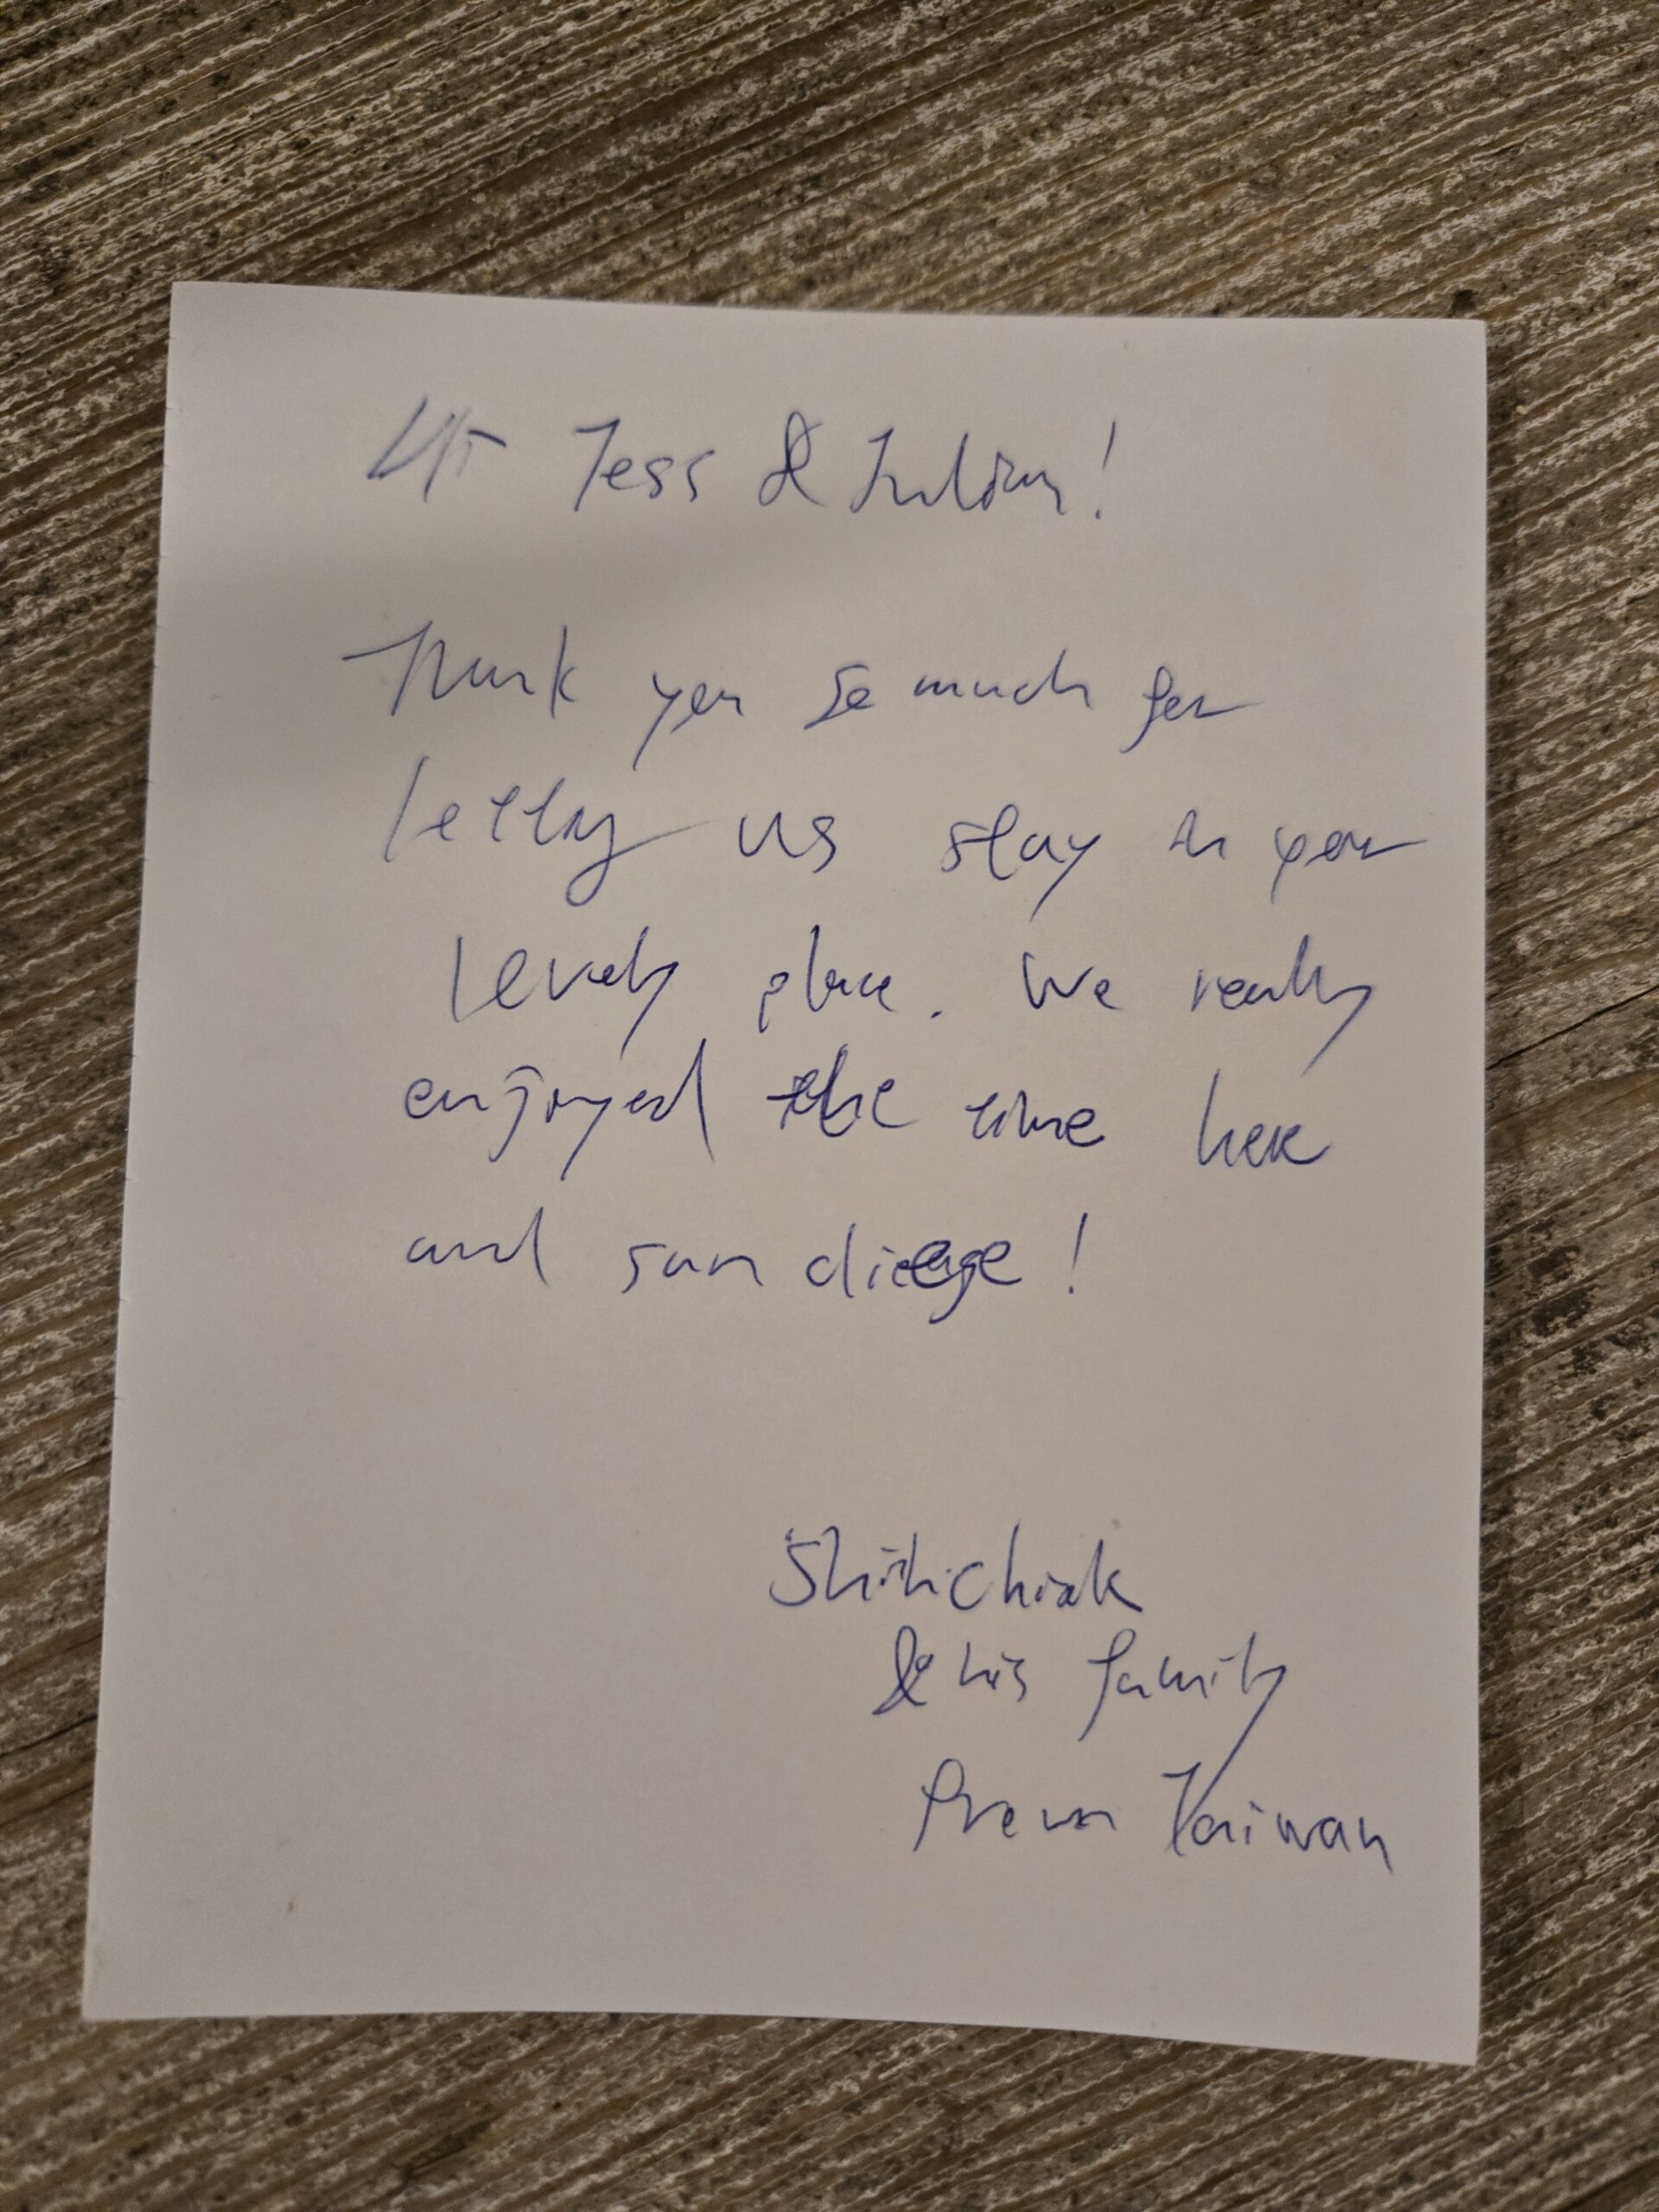 Hi Jess & Julian!
Thank you so much for
letting us stay in your
lovely place. We really
enjoyed the time here
and san diego!
& his family
from Taiwan